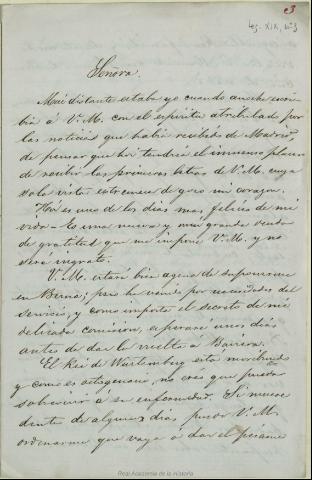 c3
Leg. XIX, nº 3
Señora.
Mui distante estaba yo cuando anoche escri-
bia á V. M. con el espiritu atribulado por
las noticias que habia recibido de Madrid,
de pensar que hoi tendria el inmenso placer
de recibir las primeras letras de V. M. cuya
sola vista estremece de gozo mi corazon.
Hoi es uno de los dias mas felices de mi
vida. Es una nueva y mui grande deuda
de gratitud que me impone V. M. y no
seré ingrato.
V. M. estará bien agena de suponerme
en Berna; pero he venido por necesidades del
servicio, y como importa el secreto de mi
delicada comision, esperaré unos dias
antes de dar la vuelta á Baviera.
El Rei de Wurtemberg está moribundo
y como es octogenario, no creo que pueda
sobrevivir á su enfermedad. Si muere
dentro de algunos dias puede V. M.
ordenarme que vaya á dar el pésame
Real Academia de la Historia